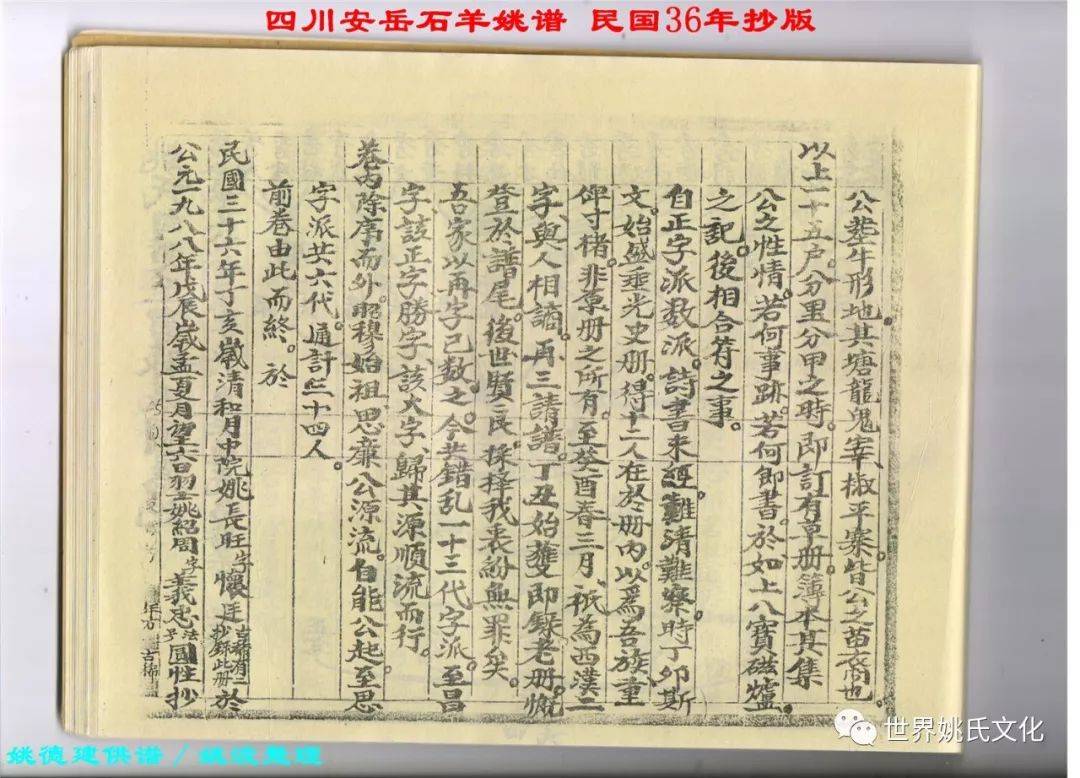 四川安岳石羊姚谱 民国36年抄版
公塟牛形地其塘龍鬼寨、椒平寨。皆公之苗裔也。
以上一十五户。分里分甲之時。即訂有草册。簿本具集
公之性情。若何事跡。若何即書。於如上八寶磁爐。
之記。後相合符之事。
自正字派数派。詩書未。難清難察。時丁夘斯
文。始盛垂光史册。得十二人在於册内。以爲吾族重
俾寸楮。非草册之所有。至癸酉春三月、祇為西漢二
字、與人相謫。再三請譜。丁丑始即録老册。慨
登於譜尾。後世賢良。採擇我丧紛無罪矣。
吾家以再字已数之。今共錯乱一十三代字派。至昌
字、該正字勝字、該大字、歸其源順流而行。
巻内除序而外。昭穆始祖思廉公源流。自能公起。至思
字派共六代。通計三十四人
前巻由此而終。於
民國三十六年丁亥嵗清和月中院姚長旺字懷廷抄録此册於
公元一九八八年戊辰嵗孟夏月望六日羽士姚紹周字義忠法号圓性抄
姚德建供谱／姚波整理
世界姚氏文化